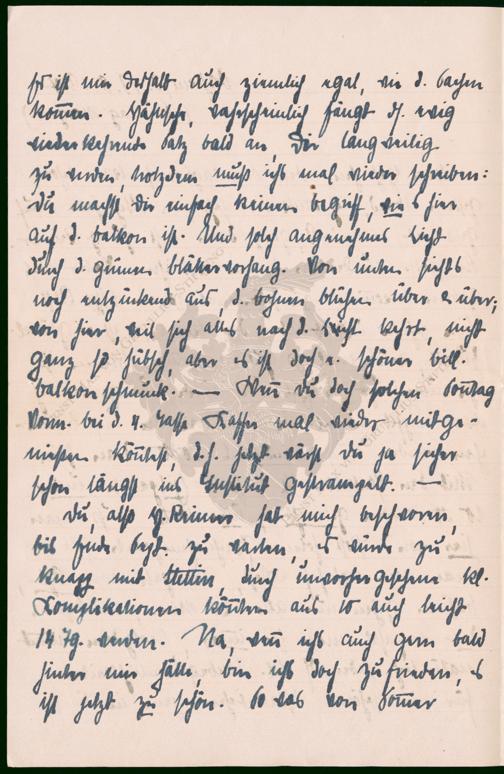 so ist mir deshalb auch ziemlich egal, wie d. Sachen
kommen. Hähnsche, wahrscheinlich fängt ds. ewig
wiederkehrende Satz bald an, Dir langweilig
zu werden, trotzdem muß ichs mal wieder schreiben:
Du machst dir einfach keinen Begriff, wie s hier
auf d. Balkon ist. Und solch angenehmes Licht
durch d. grünen Blättervorhang. Von unten siehts
noch entzückend aus, d. Bohnen blühen über u über;
von hier, weil sich alles nach d. Licht kehrt, nicht
ganz so hübsch, aber es ist doch e. schöner bill.
Balkonschmuck. — Wenn Du doch solchen Sonntag
Vorm. bei d. 4. Tasse Kaffee mal wieder mitge-
nießen könntest, d.h. jetzt wärst Du ja sicher
schon längst ins Institut gestrampelt. —
Du, also hat mich beschworen,
bis Ende Sept. zu warten, es würde zu
knapp mit Stettin, durch unvorhergesehene kl.
Komplikationen könnten aus 10 auch leicht
14 Tg. werden. Na, wenn ichs auch gern bald
hinter mir hätte, bin ichs doch zufrieden, es
ist jetzt zu schön. So was von Sommer